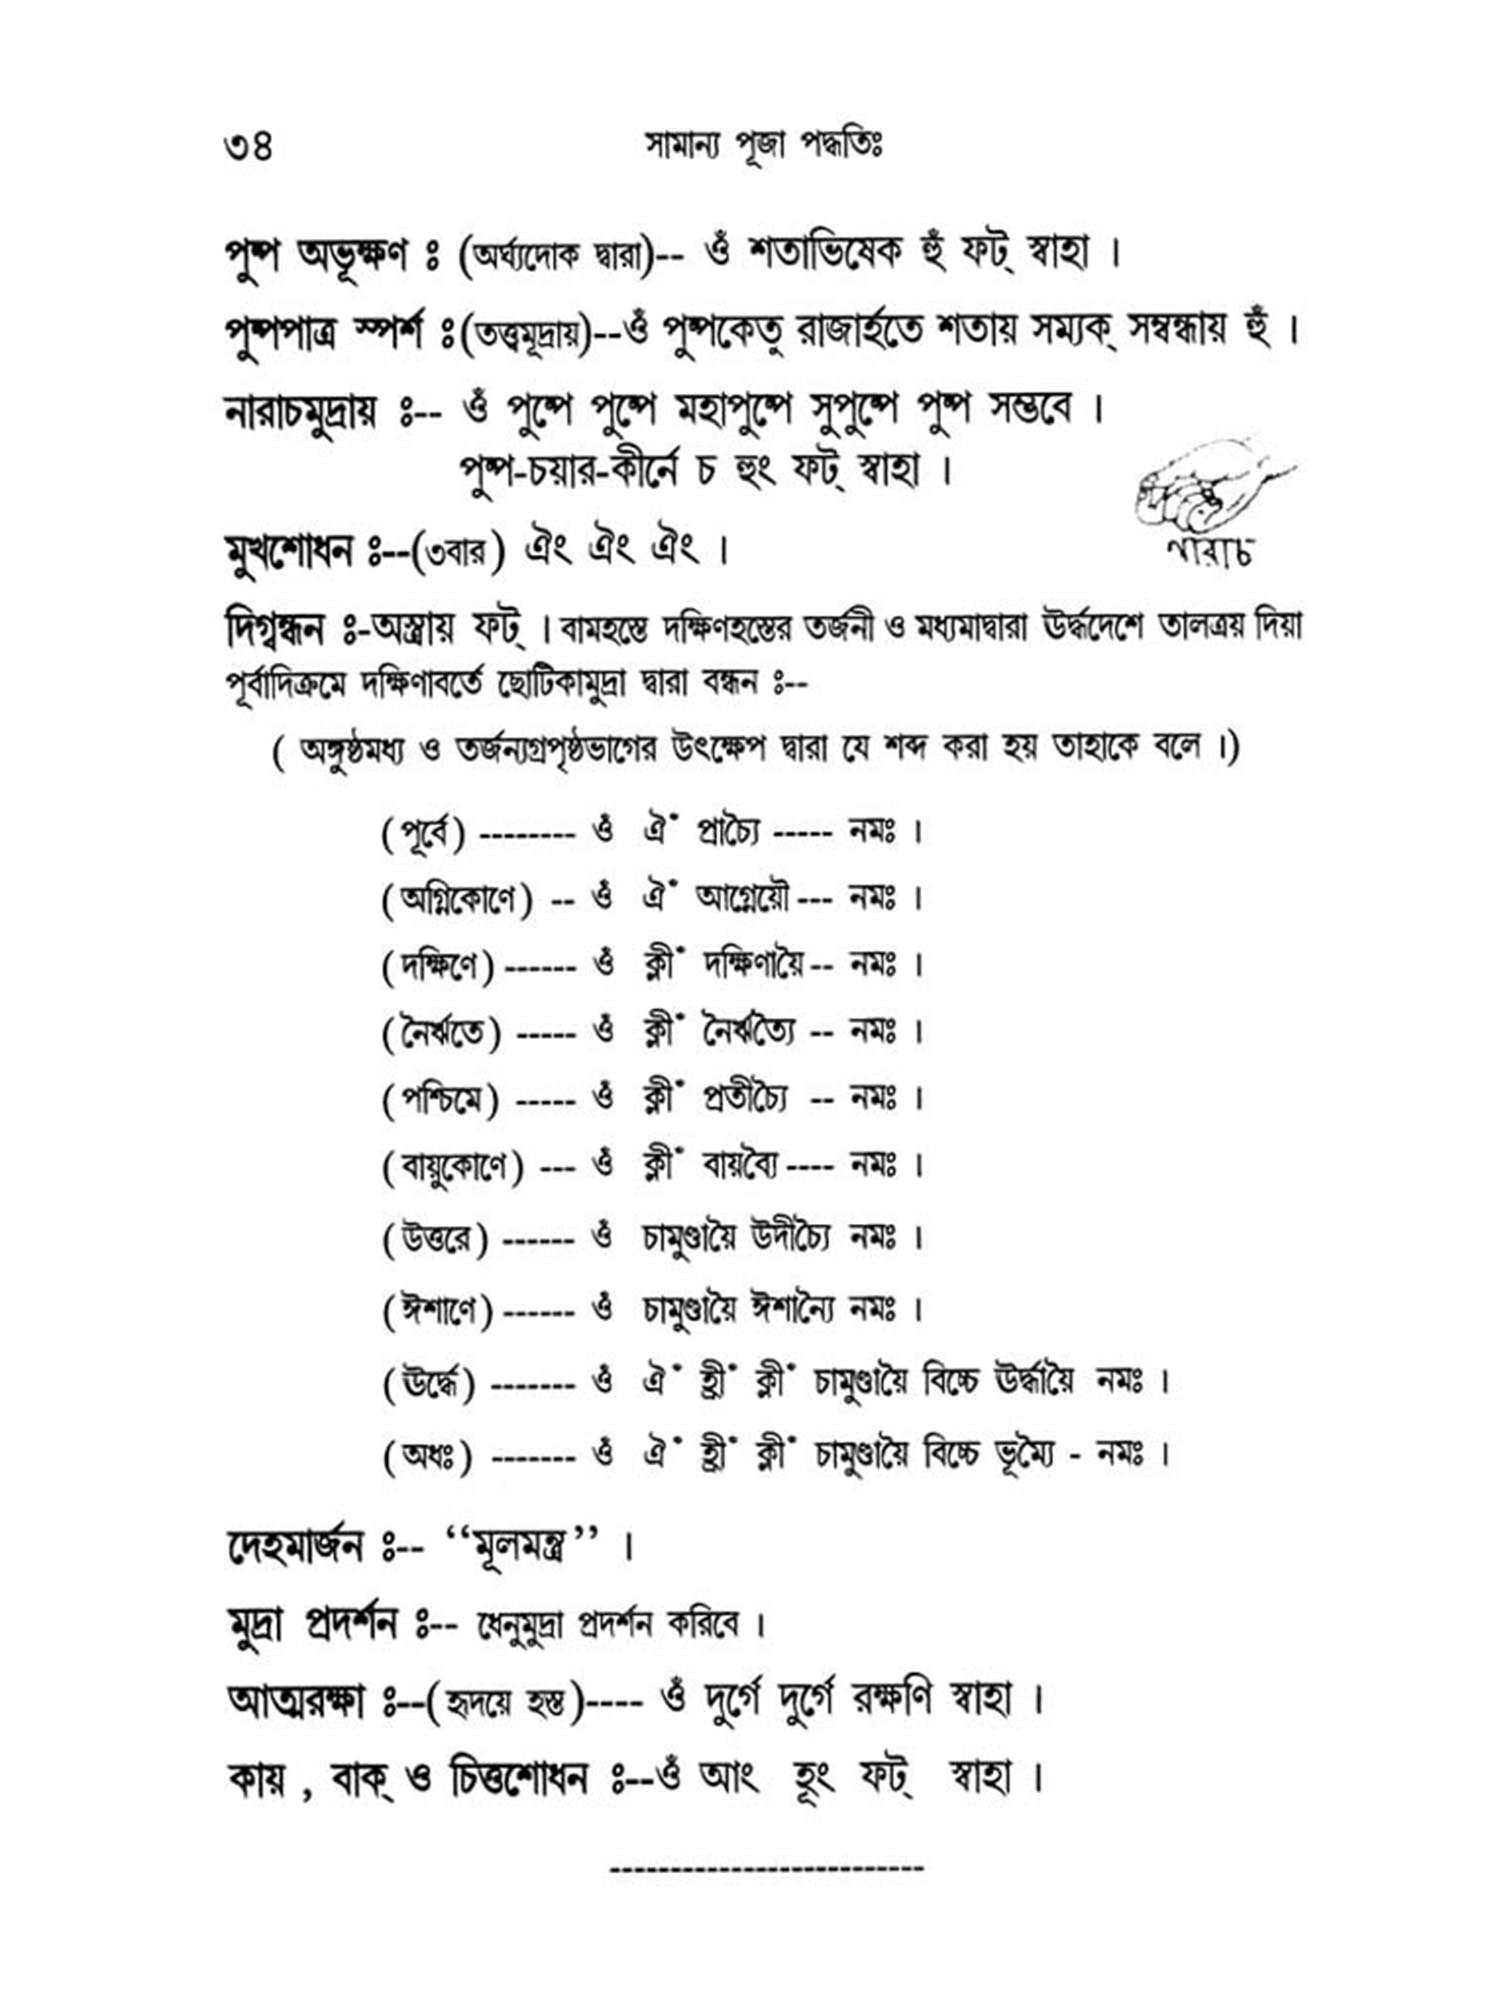 ৩৪ সামান্য পূজা পদ্ধতিঃ
পুষ্প অভূক্ষণ ঃ (অর্ঘ্যদোক দ্বারা)-- ওঁ শতাভিষেক হুঁ ফট্ স্বাহা ।
পুষ্পপাত্র স্পর্শ ঃ(তত্ত্বমূদ্রায়)--ওঁ পুষ্পকেতু রাজার্হতে শতায় সম্যক্ সম্বন্ধায় হুঁ ।
নারাচমুদ্রায় ঃ-- ওঁ পুষ্পে পুষ্পে মহাপুষ্পে সুপুষ্পে পুষ্প সম্ভবে ।
পুষ্প-চয়ার-কীর্নে চ হুং ফট্ স্বাহা ।
নারাচ
মুখশোধন ঃ--(৩বার) ঐং ঐং ঐং ।
দিগ্বন্ধন ঃ-অস্ত্রায় ফট্ । বামহস্তে দক্ষিণহস্তের তর্জনী ও মধ্যমাদ্বারা ঊর্দ্ধদেশে তালত্রয় দিয়া
পূর্বাদিক্রমে দক্ষিণাবর্তে ছোটিকামুদ্রা দ্বারা বন্ধন ঃ--
( অঙ্গুষ্ঠমধ্য ও তর্জন্যগ্রপৃষ্ঠভাগের উৎক্ষেপ দ্বারা যে শব্দ করা হয় তাহাকে বলে ।)
(পূর্বে) -------- ওঁ ঐঁ প্রাচ্যৈ ----- নমঃ ।
(অগ্নিকোণে) -- ওঁ ঐঁ আগ্নেয়ৌ --- নমঃ ।
(দক্ষিণে) ------ ওঁ ক্লীঁ দক্ষিণায়ৈ -- নমঃ ।
(নৈর্ঋতে) ----- ওঁ ক্লীঁ নৈর্ঋত্যৈ -- নমঃ ।
(পশ্চিমে) ----- ওঁ ক্লীঁ প্রতীচ্যৈ -- নমঃ ।
(বায়ুকোণে) --- ওঁ ক্লীঁ বায়ব্যৈ ---- নমঃ ।
(উত্তরে) ------ ওঁ চামুণ্ডায়ৈ উদীচ্যৈ নমঃ ।
(ঈশাণে) ------ ওঁ চামুণ্ডায়ৈ ঈশান্যৈ নমঃ ।
(ঊর্দ্ধে) ------- ওঁ ঐঁ হ্রীঁ ক্লীঁ চামুণ্ডায়ৈ বিচ্চে ঊর্দ্ধায়ৈ নমঃ ।
(অধঃ) ------- ওঁ ঐঁ হ্রীঁ ক্লীঁ চামুণ্ডায়ৈ বিচ্চে ভূম্যৈ - নমঃ ।
দেহমার্জন ঃ-- ‘‘মূলমন্ত্র’’ ।
মুদ্রা প্রদর্শন ঃ-- ধেনুমুদ্রা প্রদর্শন করিবে ।
আত্মরক্ষা ঃ--(হৃদয়ে হস্ত)---- ওঁ দুর্গে দুর্গে রক্ষণি স্বাহা ।
কায় , বাক্ ও চিত্তশোধন ঃ--ওঁ আং হূং ফট্ স্বাহা ।
--------------------------